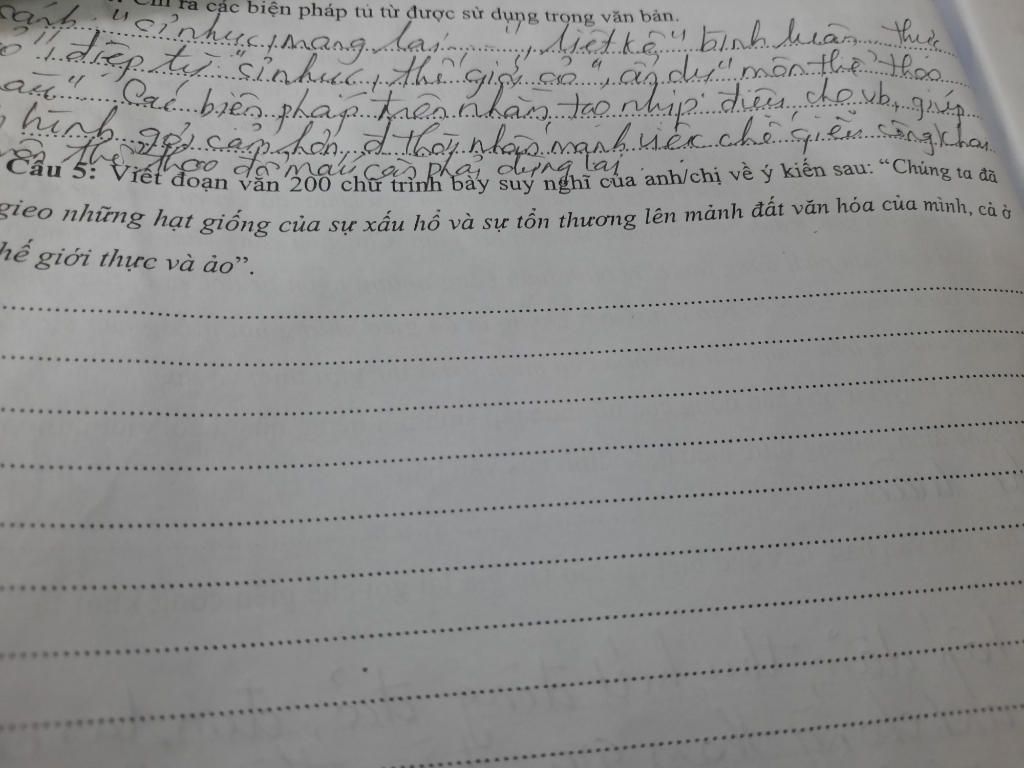 ra các biện pháp tu từ được sử dụng trong văn bản.
sánh "sỉ nhục, mạng lại ......", liệt kê "bình luận thức
điệp từ "sỉ nhục, thế giới ảo", ẩn dụ "môn thể thao
máu" Các biện pháp trên nhằm tạo nhịp điệu cho vb, giúp
hình gợi cảm hơn, đ thời nhấn mạnh việc chế giễu công khai
thể thao đổ máu cần phải dừng lại
Câu 5: Viết đoạn văn 200 chữ trình bày suy nghĩ của anh/chị về ý kiến sau: "Chúng ta đã
gieo những hạt giống của sự xấu hổ và sự tổn thương lên mảnh đất văn hóa của mình, cả ở
thế giới thực và ảo".